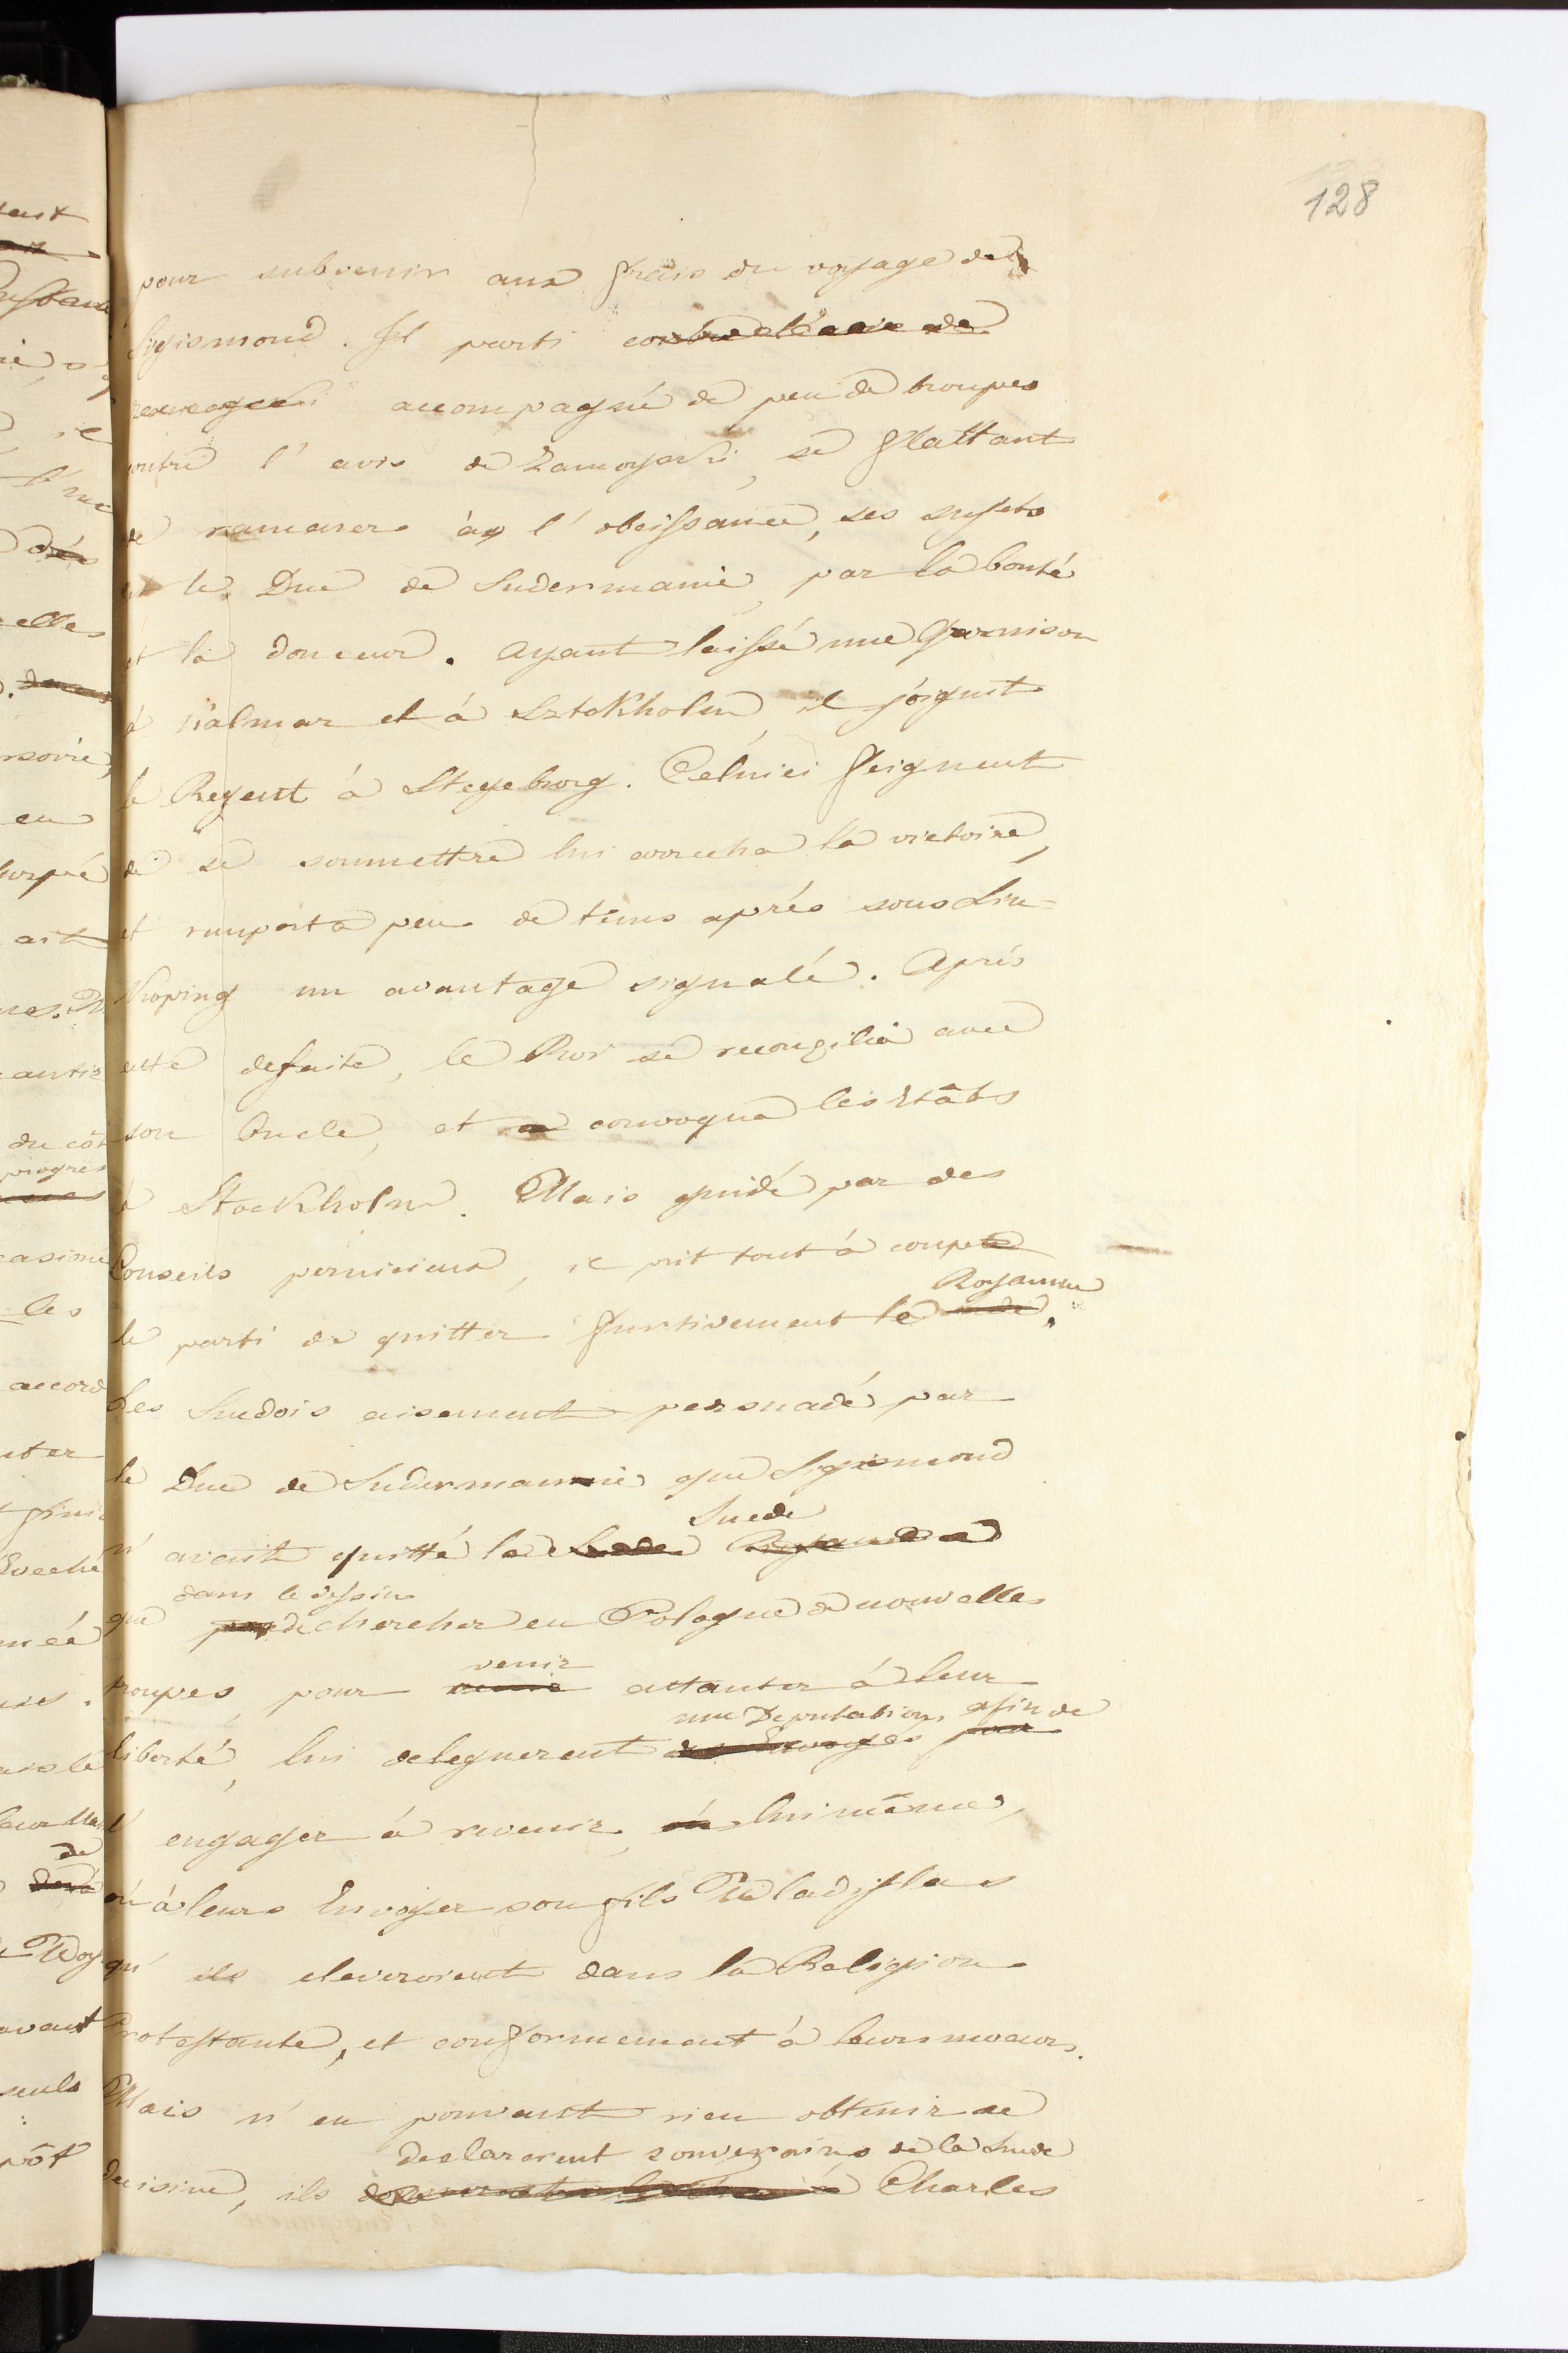 128
pour subvenir aux frais du voyage de
Sigismond. Il parti contre l'avis de
accompagné de peu de troupes
contre l'avis de Zamoyski, se flattant
de ramener à l'obeissance, ses sujets
et le Duc de Sudermanie, par la bonté
et la douceur. Ayant laissé une Garnison
à Kalmar et à Sztokholm, il joignit
le Regent à Stegeborg. Celuici feignent
de se soumettre lui arracha la victoire,
et remporta peu de tems aprés sous Lin-
koping un avantage signalé. Aprés
cette defaite, le Roi se reconcilia avec
son Oncle, et convoqua les Etâts
à Stockholm. Mais guidé par des
Conseils pernicieux, il prit tout à coup
Royaume
le parti de quitter furtivement le
Les Suedois aisement persuadé par
le Duc de Sudermannie que Sigismond
Suede
n'avait quitté la Royaume
dans le dessin
que de chercher en Pologne de nouvelles
venir
troupes, pour attanter à leur
une Deputation, afin de
liberté, lui deleguerent des Envoyés pour
l'engager à revenir, lui même,
où à leurs Envoyer son fils Wladislas
qu'ils eleveroient dans la Religion
Protestante, et conformement à leurs moeurs.
Mais n'en pouvant rien obtenir de
declarerent souverains de la Suede
decisive, ils Charles